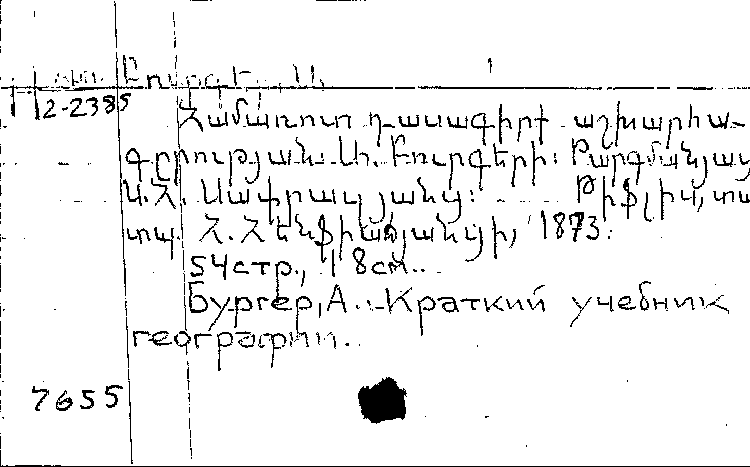 Բուրգեր, Ա.
12-2385
Համառոտ դասագիրք աշխարհա-
գրության Ա. Բուրգերի։ Թարգմանյաց
Ս.Հ. Սաֆրազյանց։ Թիֆլիս, տպ
տպ. Հ. Հէնֆիաճյանցի, 1873.
54стр., 18см.
Бургер, А. Краткий учебник
географии.
7655